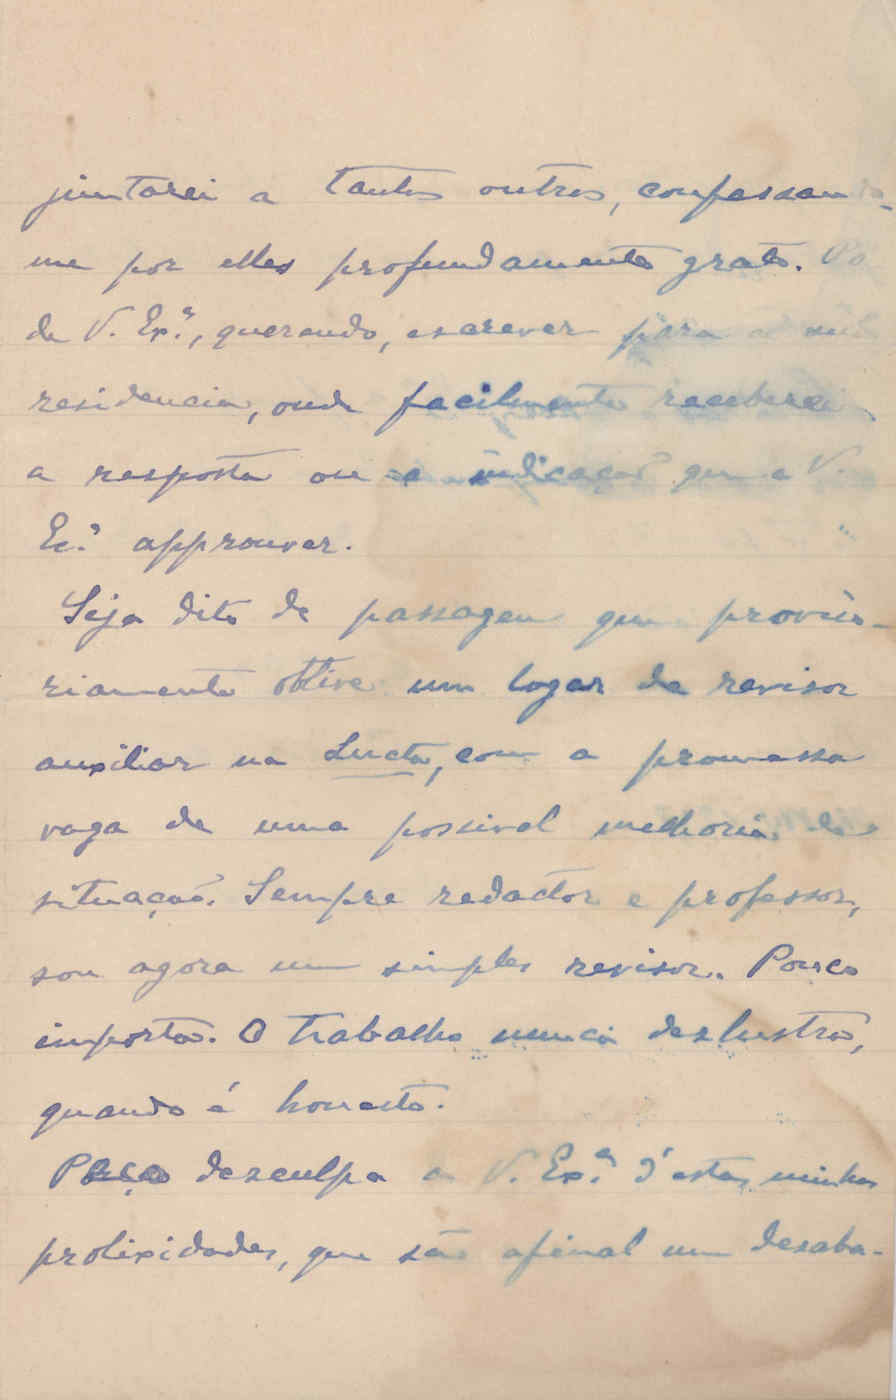 juntarei a tantos outros, confessando-
me por elles profundamente grato. Po-
de V. Ex.ª, querendo, escrever para a
residencia, onde facilmente receberei
a resposta ou a indicação que a V.
Ex.ª approuver.
Seja dito de passagem que proviso-
riamente obtive um logar de revisor
auxiliar na Lucta, com a promessa
vaga de uma possivel melhoria de
situação. Sempre redactor e professor,
sou agora um simples revisor. Pouco
importa. O trabalho nunca deslustra,
quando é honesto.
Peço desculpa a V. Ex.ª d'estas minhas
prolixidades, que são afinal um desaba-